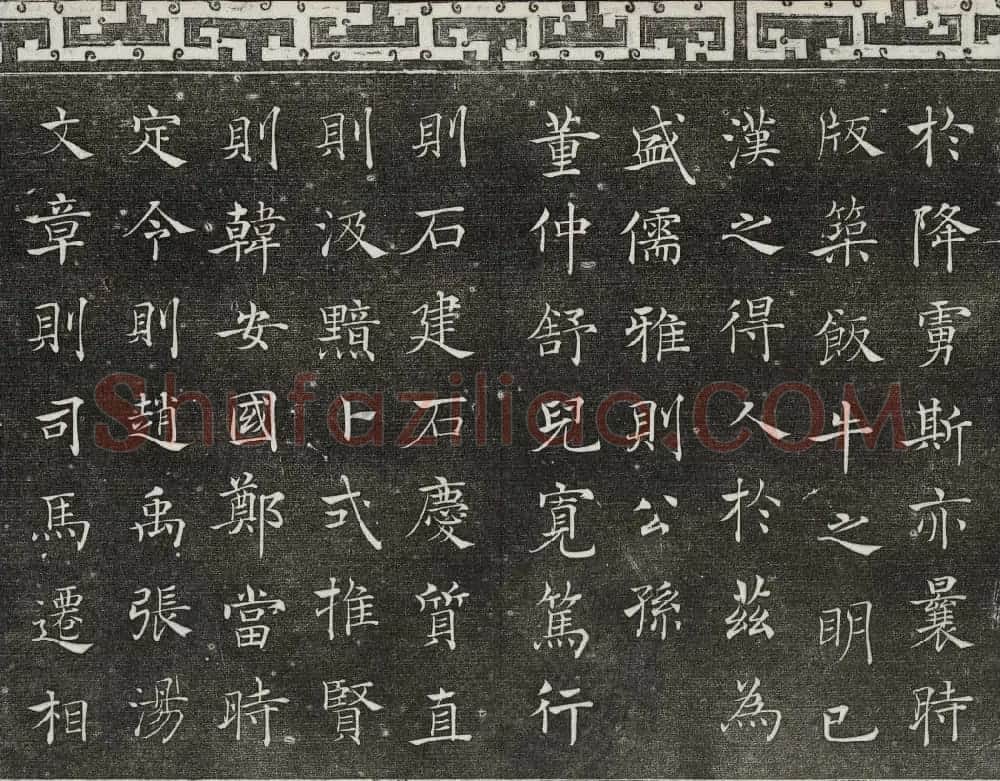 於降虜斯亦曩時
版築飯牛之明已
漢之得人於茲為
盛儒雅則公孫
董仲舒兒寬篤行
則石建石慶質直
則汲黯卜式推賢
則韓安國鄭當時
定令則趙禹張湯
文章則司馬遷相
Shufaziliao.COM